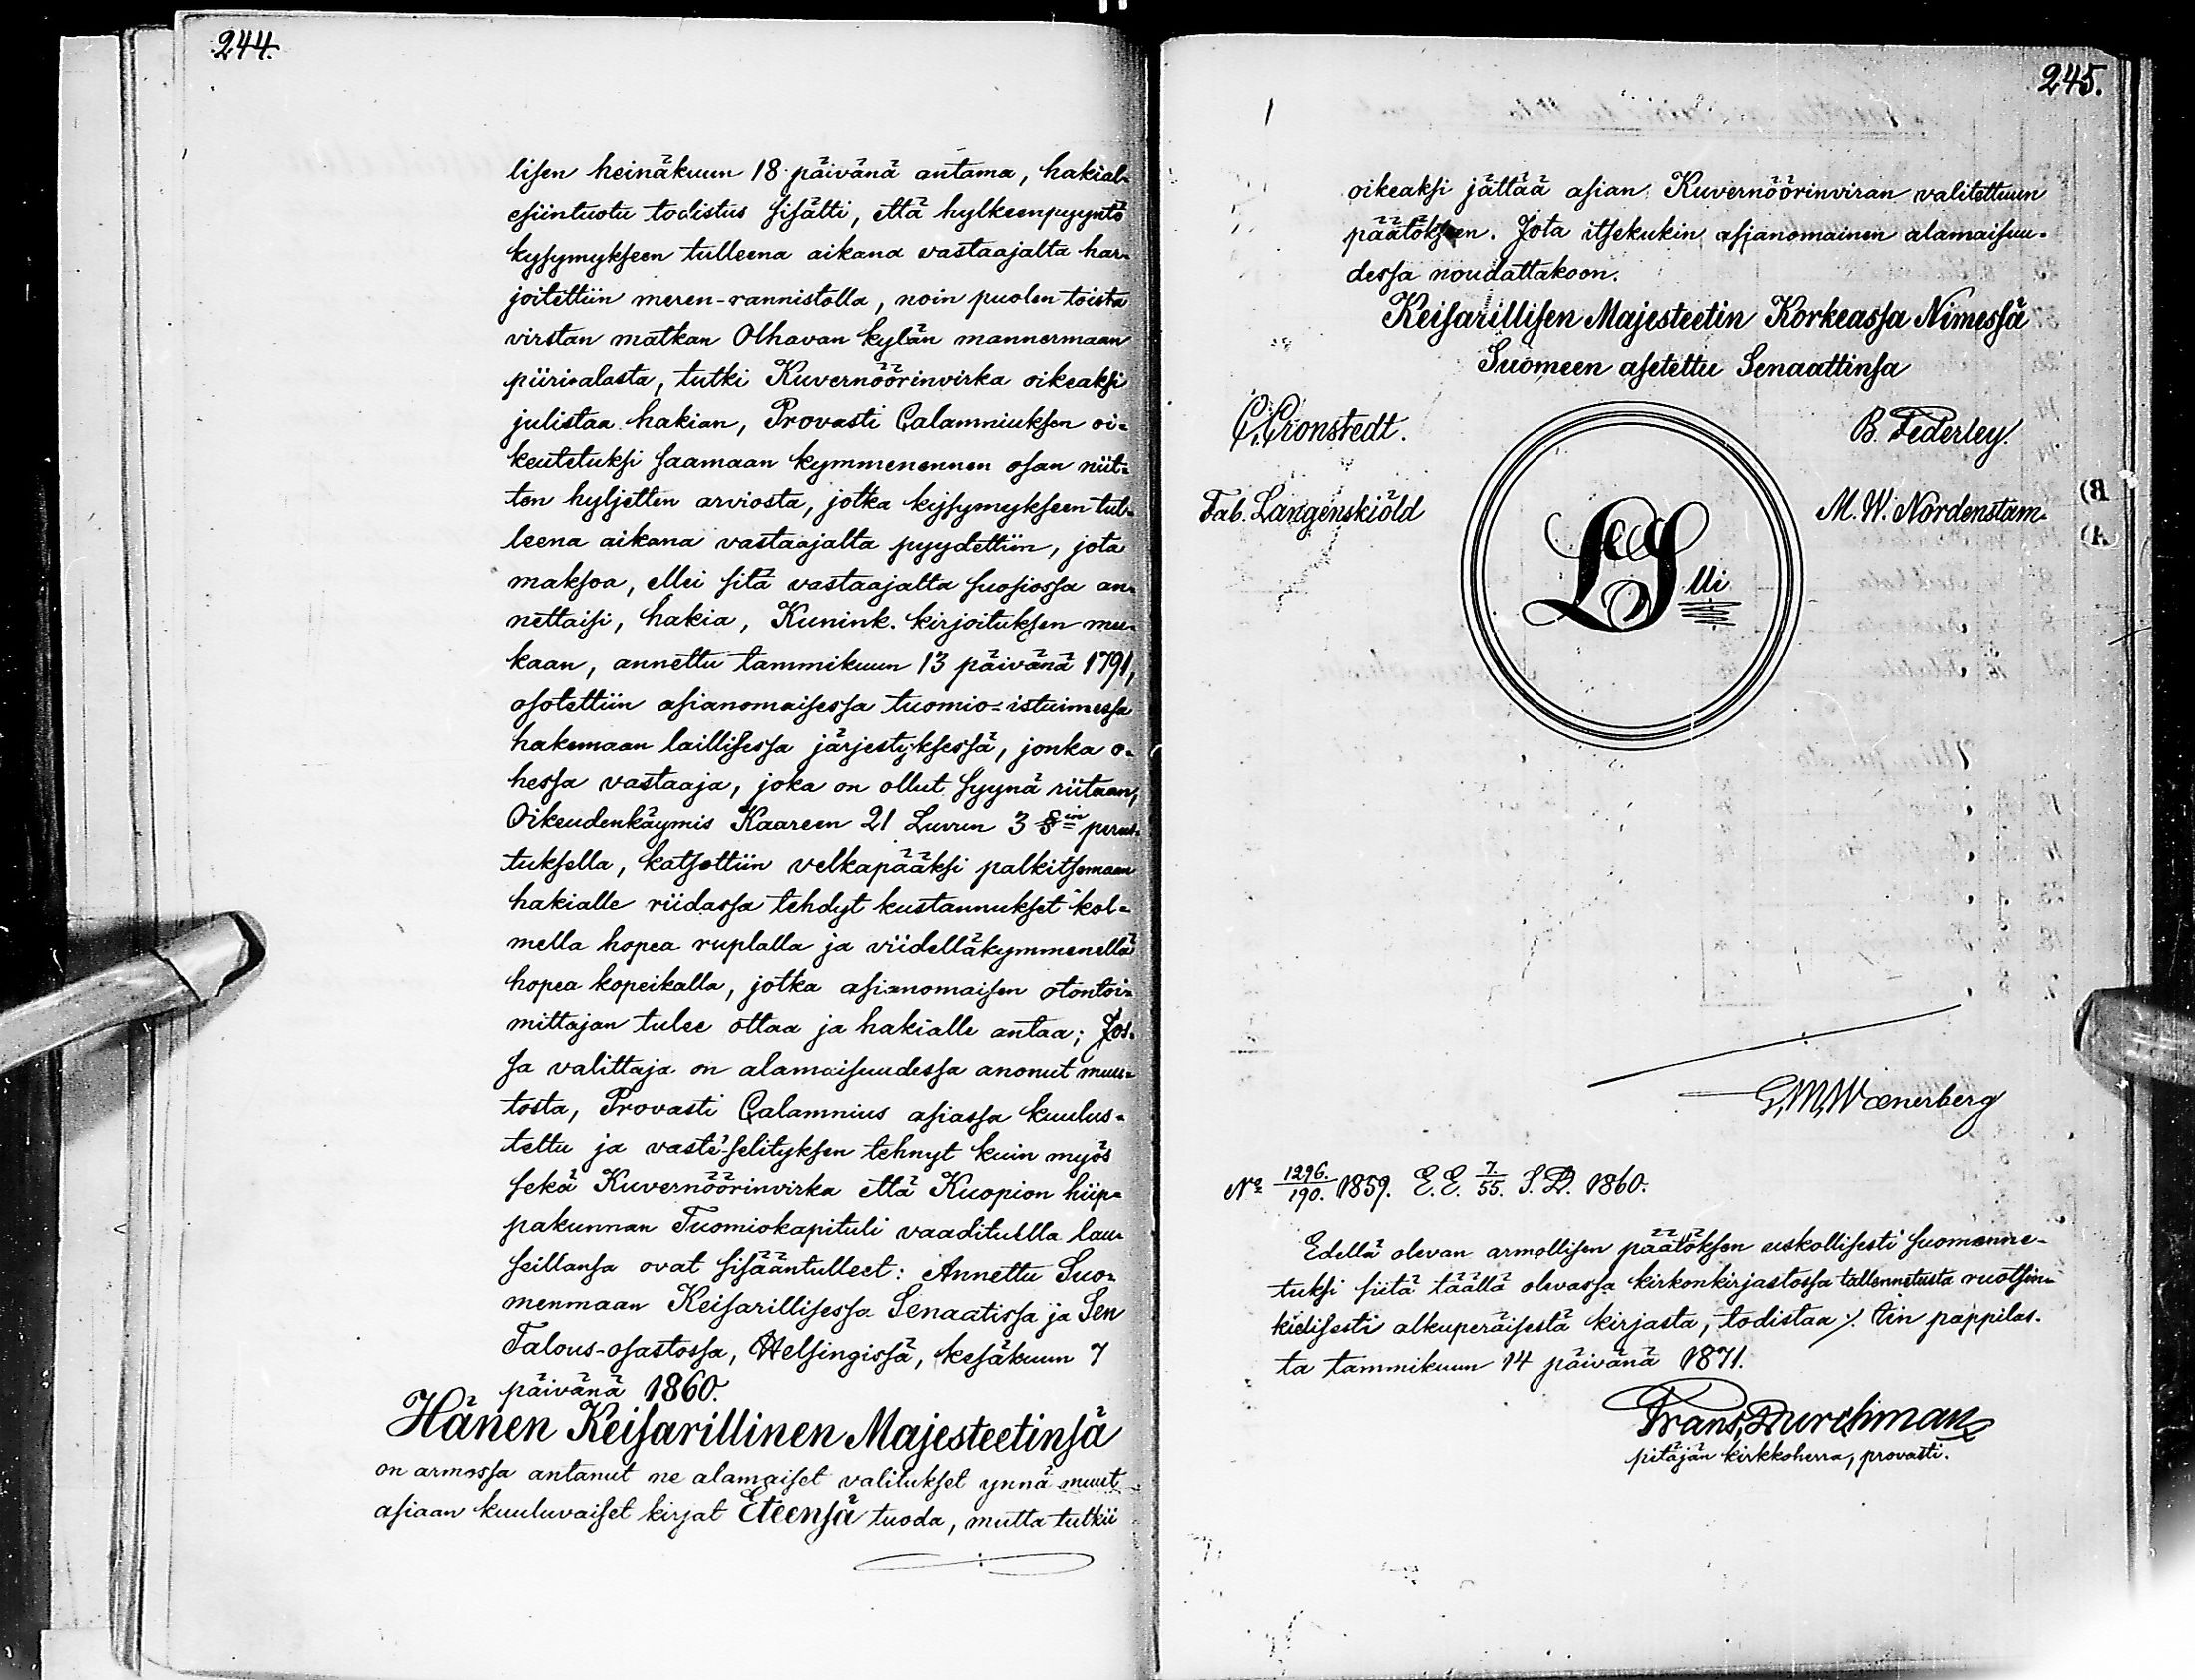 244.
lisen heinäkuun 18 päivänä antama, hakial-
esiintuotu todistus sisälti, että hylkeenpyyntö
kysymykseen tulleena aikana vastaajalta har-
joitettiin meren-rannistolla, noin puolen toista
virstan matkan Olhavan kylän mannermaan
piiri-alasta, tutki Kuvernöörinvirka oikeaksi
julistaa hakian, Provasti Calamniuksen oi-
keutetuksi saamaan kymmenennen osan niit-
ten hyljetten arviosta, jotka kysymykseen tul-
leena aikana vastaajalta pyydettiin, jota
maksoa, ellei sitä vastaajalta suosiossa an-
nettaisi, hakia, Kunink. kirjoituksen mu-
kaan, annettu tammikuun 13 päivänä 1791,
osotettiin asianomaisessa tuomio-istuimessa
hakemaan laillisessa järjestyksessä, jonka o-
hessa vastaaja, joka on ollut syynä riitaan,
Oikeudenkäymis Kaareen 21 Luvun 3 §in perus-
tuksella, katsottiin velkapääksi palkitsemaan
hakialle riidassa tehdyt kustannukset kol-
mella hopea ruplalla ja viidelläkymmenellä
hopea kopeikalla, jotka asianomaisen otontoi-
mittajan tulee ottaa ja hakialle antaa; Jos-
sa valittaja on alamaisuudessa anonut muu-
tosta, Provasti Calamnius asiassa kuulus-
tettu ja vaste-selityksen tehnyt kuin myös
sekä Kuvernöörinvirka että Kuopion hiip-
pakunnan Tuomiokapituli vaadituilla lau-
seillansa ovat sisääntulleet: Annettu Suo-
menmaan Keisarillisessa Senaatissa ja Sen
Talous-osastossa, Helsingissä, kesäkuun 7
päivänä 1860.
Hänen Keisarillinen Majesteetinsä
on armossa antanut ne alamaiset valitukset ynnä muut
asiaan kuuluvaiset kirjat Eteensä tuoda, mutta tutkii
245.
oikeaksi jättää asian Kuvernöörinviran valitettuun
päätökseen. Jota itsekukin asianomainen alamaisuu-
dessa noudattakoon.
Keisarillisen Majesteetin Korkeassa Nimessä
Suomeen asetettu Senaattinsa
C. Cronstedt. B. Federley.
Fab. Langenskiöld M. W. Nordenstam.
LS
lli
G, M, Wænerberg
No 1296./190. 1859. E. E. 7./55. S. D. 1860.
Edellä olevan armollisen päätöksen uskollisesti suomenne-
tuksi siitä täällä olevassa kirkonkirjastossa tallennetusta ruotsin-
kielisesti alkuperäisestä kirjasta, todistaa ⁒. Iin pappilas-
ta tammikuun 14 päivänä 1871.
Frans, Durchman
pitäjän kirkkoherra, provasti.